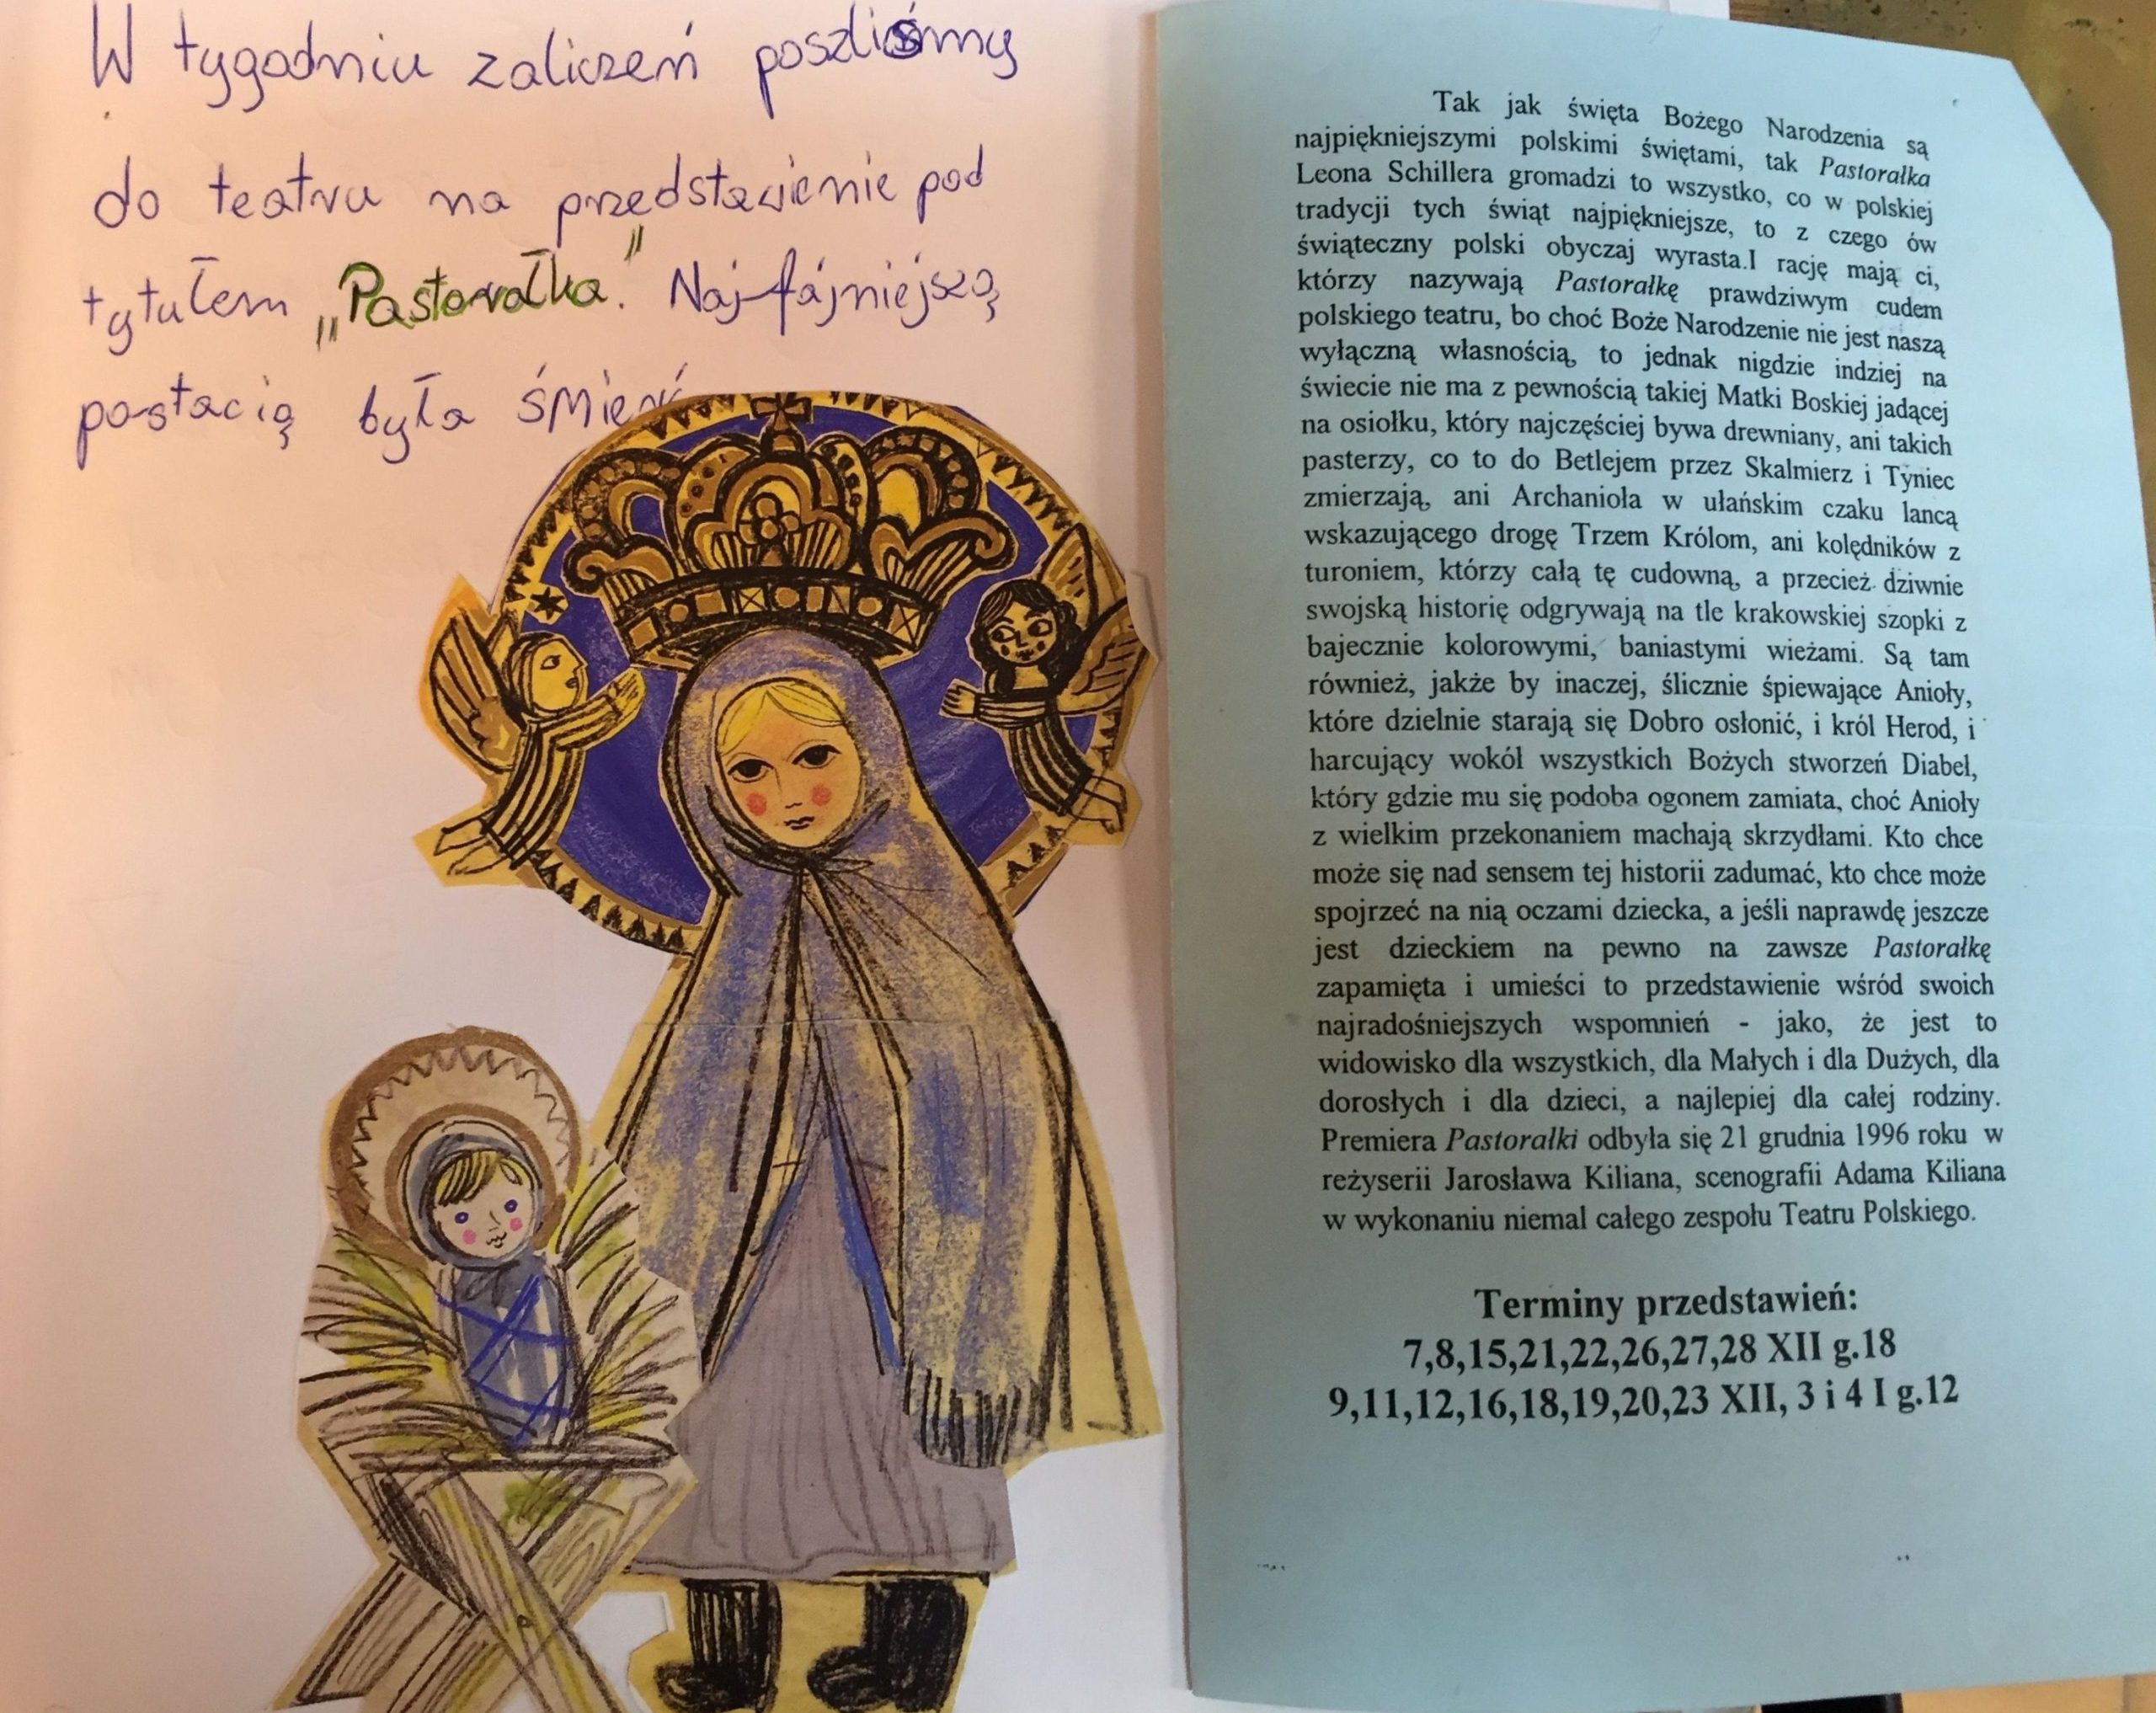 W tygodniu zaliczeń poszliśmy
do teatru na przedstawienie pod
tytułem „Pastorałka”. Najfajniejszą
postacią była śmierć
Tak jak święta Bożego Narodzenia są
najpiękniejszymi polskimi świętami, tak Pastorałka
Leona Schillera gromadzi to wszystko, co w polskiej
tradycji tych świąt najpiękniejsze, to z czego ów
świąteczny polski obyczaj wyrasta.I rację mają ci,
którzy nazywają Pastorałkę prawdziwym cudem
polskiego teatru, bo choć Boże Narodzenie nie jest naszą
wyłączną własnością, to jednak nigdzie indziej na
świecie nie ma z pewnością takiej Matki Boskiej jadącej
na osiołku, który najczęściej bywa drewniany, ani takich
pasterzy, co to do Betlejem przez Skalmierz i Tyniec
zmierzają, ani Archanioła w ułańskim czaku lancą
wskazującego drogę Trzem Królom, ani kolędników z
turoniem, którzy całą tę cudowną, a przecież dziwnie
swojską historię odgrywają na tle krakowskiej szopki z
bajecznie kolorowymi, baniastymi wieżami. Są tam
również, jakże by inaczej, ślicznie śpiewające Anioły,
które dzielnie starają się Dobro osłonić, i król Herod, i
harcujący wokół wszystkich Bożych stworzeń Diabeł,
który gdzie mu się podoba ogonem zamiata, choć Anioły
z wielkim przekonaniem machają skrzydłami. Kto chce
może się nad sensem tej historii zadumać, kto chce może
spojrzeć na nią oczami dziecka, a jeśli naprawdę jeszcze
jest dzieckiem na pewno na zawsze Pastorałkę
zapamięta i umieści to przedstawienie wśród swoich
najradośniejszych wspomnień - jako, że jest to
widowisko dla wszystkich, dla Małych i dla Dużych, dla
dorosłych i dla dzieci, a najlepiej dla całej rodziny.
Premiera Pastorałki odbyła się 21 grudnia 1996 roku w
reżyserii Jarosława Kiliana, scenografii Adama Kiliana
w wykonaniu niemal całego zespołu Teatru Polskiego.
Terminy przedstawień:
7,8,15,21,22,26,27,28 XII g.18
9,11,12,16,18,19,20,23 XII, 3 i 4 I g.12